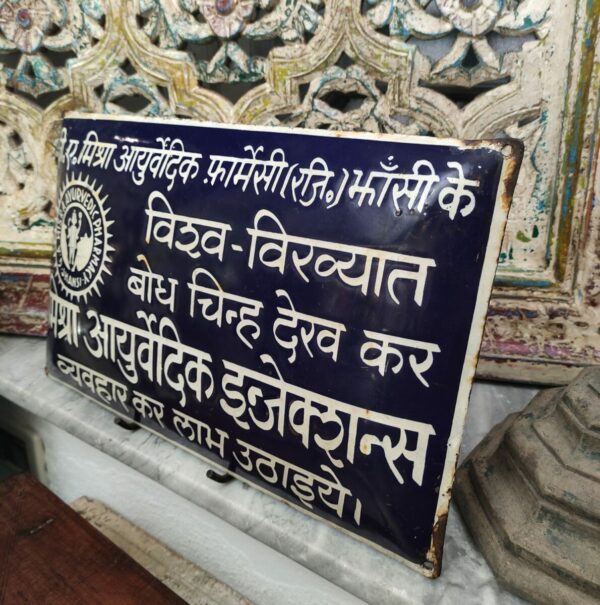 ए. मिश्रा आयुर्वेदिक फ़ार्मेसी (रजि॰) झाँसी के
विश्व-विख्यात
बोध चिन्ह देख कर
मिश्रा आयुर्वेदिक इन्जेक्शन्स
व्यवहार कर लाभ उठाइये।
AYURVEDIC PHARMACY
JHANSI